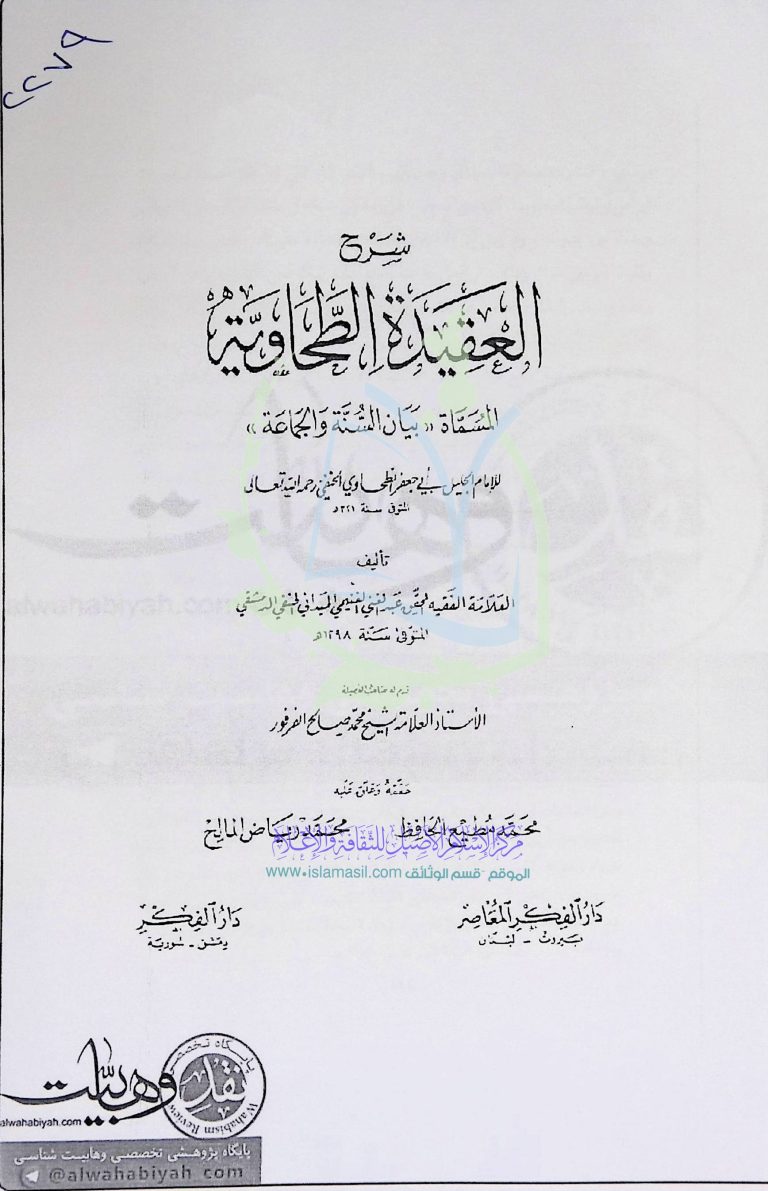 ٢٢٧٩
شرح
العقيدة الطحاوية
المسماة «بيان السنة والجماعة»
للإمام الجليل أبي جعفر الطحاوي الحنفي رحمه الله تعالى
المتوفى سنة ٣٢١هـ
تأليف
العلامة الفقيه المحقق عبد الغني الغنيمي الميداني الحنفي الدمشقي
المتوفى سنة ١٢٩٨هـ
قدم له صاحب الفضيلة
الأستاذ العلامة الشيخ محمد صالح الفرفور
حققه وعلق عليه
محمد مطيع الحافظ محمد رياض المالح
مركز الإسلام الأصيل للثقافة والإعلام
الموقع - قسم الوثائق www.islamasil.com
دار الفكر المعاصر
بيروت - لبنان
دار الفكر
دمشق - سورية
پایگاه تخصصی
نقد وهابیت
Wahabism Review
alwahabiyah.com
پایگاه پژوهشی تخصصی وهابیت شناسی
@alwahabiyah_com